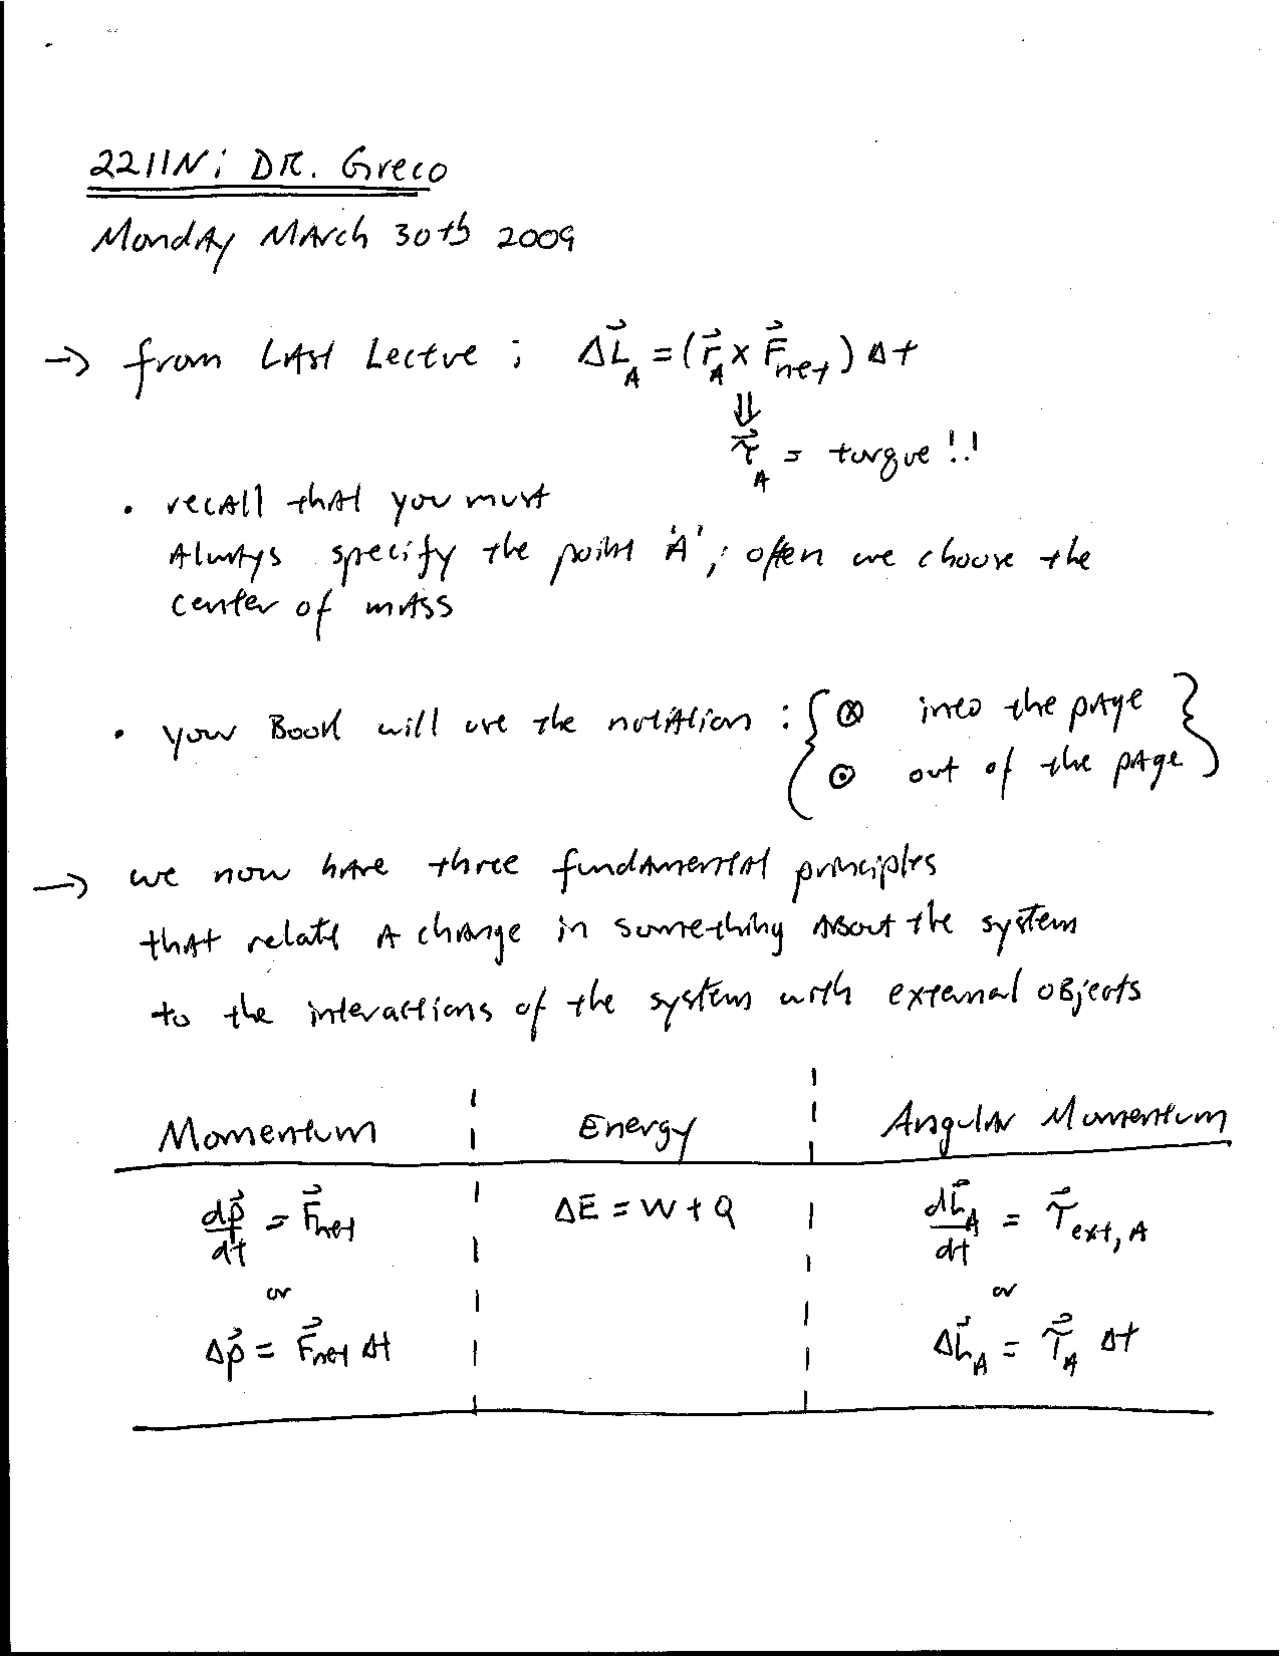 2211N; DR. Greco
Monday March 30th 2009
→ from LAst Lectve ; ΔL⃗_A = (r⃗_A × F⃗_net) Δt
⇓
τ⃗_A = torque!!
• recAll thAt you must
Always specify the point 'A'; often we choose the
center of mAss
• your Book will use the notAtion : { ⊗ into the pAge }
⊙ out of the pAge
→ we now hAve three fundAmentAl principles
thAt relate A chAnge in something ABout the system
to the interactions of the system with external oBjects
Momentum | Energy | AngulAr Momentum
dp⃗/dt = F⃗_net | ΔE = W + Q | dL⃗_A/dt = τ⃗_ext, A
or | | or
Δp⃗ = F⃗_net Δt | | ΔL⃗_A = τ⃗_A Δt